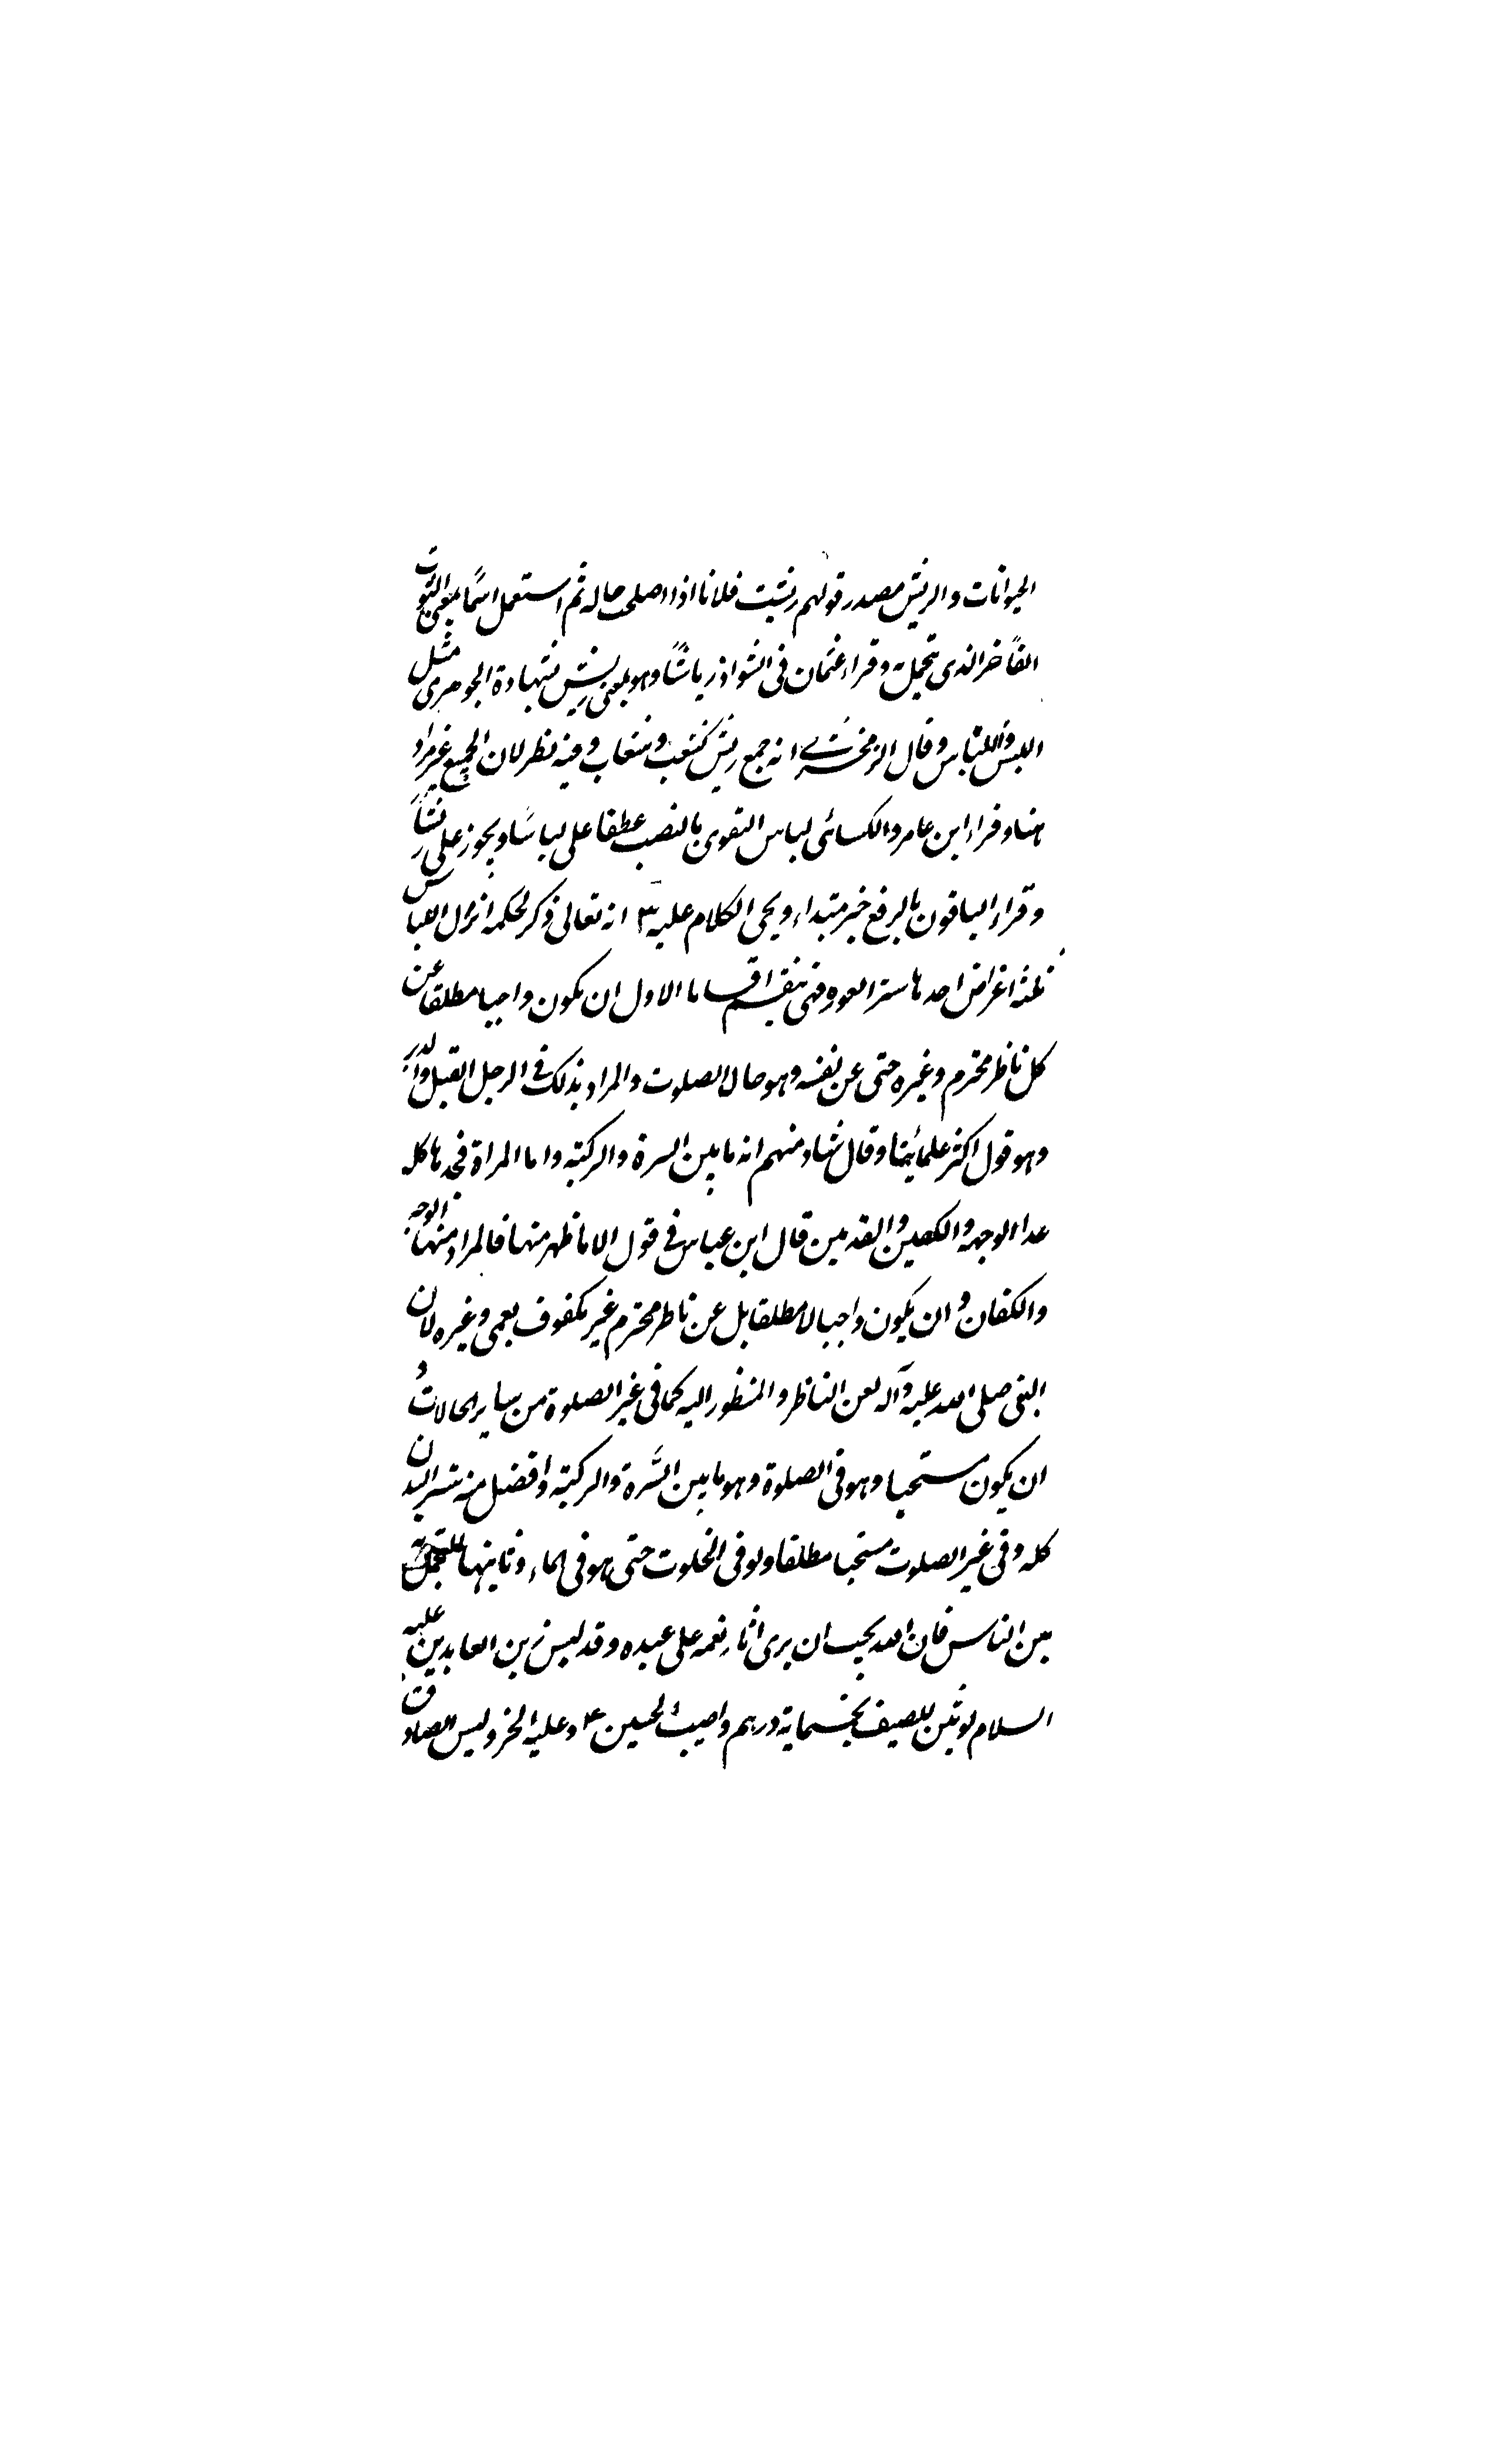 الحيوانات والريش مصدر قولهم رشيت فلانا اذا اصلحت حاله ثم استعمل اسمًا بمعنى الثوب
الفاخر الذى يتجمل به وقراء عثمان فى الشواذ رياشًا وهو بمعنى ريش بشهادة الجوهرى مثل
اللبس واللباس وقال الزمخشرے انه جمع ريش كشعب وشعاب وفيه نظر لان الجمع غير مراد
هنا وقراء ابن عامر والكسائى لباس التقوى بالنصب عطفا على لباسًا ويجوز على ريشًا
وقراء الباقون بالرفع خبر مبتداء ويحى الكلام عليه انه تعالى ذكر لحكمه انزال اللباس
ثلثه اغراض احدها ستر العوره فهى ينقسم اقساما الاول ان يكون واجبا مطلقا عن
كل ناظر محترم وغيره حتى عن نفسه وهو حال الصلوت والمراد بذلك فى الرجل القبل والدبر
وهو قول اكثر علمائنا وقال شاد منهم انه ما بين السرة والركبته واما المراة فجدها كله
عدا الوجه والكعين والقدمين قال ابن عباس فى قول الا ما ظهر منها فالمراد منها الوجه
والكفان و ان يكون واجبا لا مطلقا بل عن ناظر محترم غير مكفوف بعمى وغيره لان
النبى صلى الله عليه وآله لعن الناظر والمنظور اليه كما فى غير الصلوة من ساير الحالات و
ان يكون مستحبا وهو فى الصلوة وهو ما بين السَّرة والركبته وافضل منه ستر البدن
كله وفى غير الصلوت مستحبا مطلقا ولو فى الخلوت حتى هو فى الماء وثانيها للتجمل
بين الناس فان الله يحب ان يرى اثار نعمه على عبده وقد لبس زين العابدين عليه
السلام ثوبين للصيف بخسماية درهم واصيب الحسين ع وعليه الخز ولبس الصادق